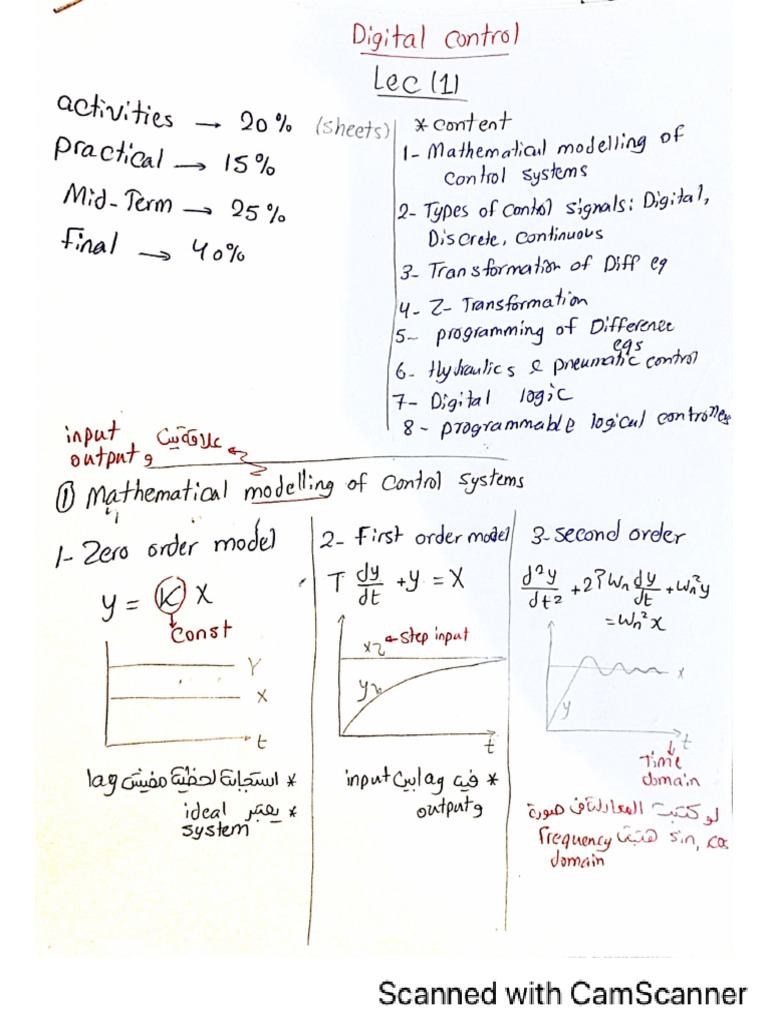 Digital control
Lec (1)
activities → 20% (sheets)
Practical → 15%
Mid-Term → 25%
final → 40%
* content
1- Mathematical modelling of
control systems
2- Types of control signals: Digital,
Discrete, continuous
3- Transformation of Diff eq
4- Z- Transformation
5- programming of Difference
eqs
6- Hydraulics & pneumatic control
7- Digital logic
8- programmable logical controllers
علاقة بين input
و output
① Mathematical modelling of control systems
1- Zero order model
y = K X
Const
Y
X
t
* استجابة لحظية مفيش lag
* يعتبر ideal
system
2- First order model
T dy/dt + y = X
x ← step input
y
t
* فيه lag بين input
و output
3- second order
d²y/dt² + 2ζWn dy/dt + Wn²y
= Wn²x
x
y
t
Time
domain
لو كتبت المعادلة في صورة
sin, cos هتبقى frequency
domain
Scanned with CamScanner